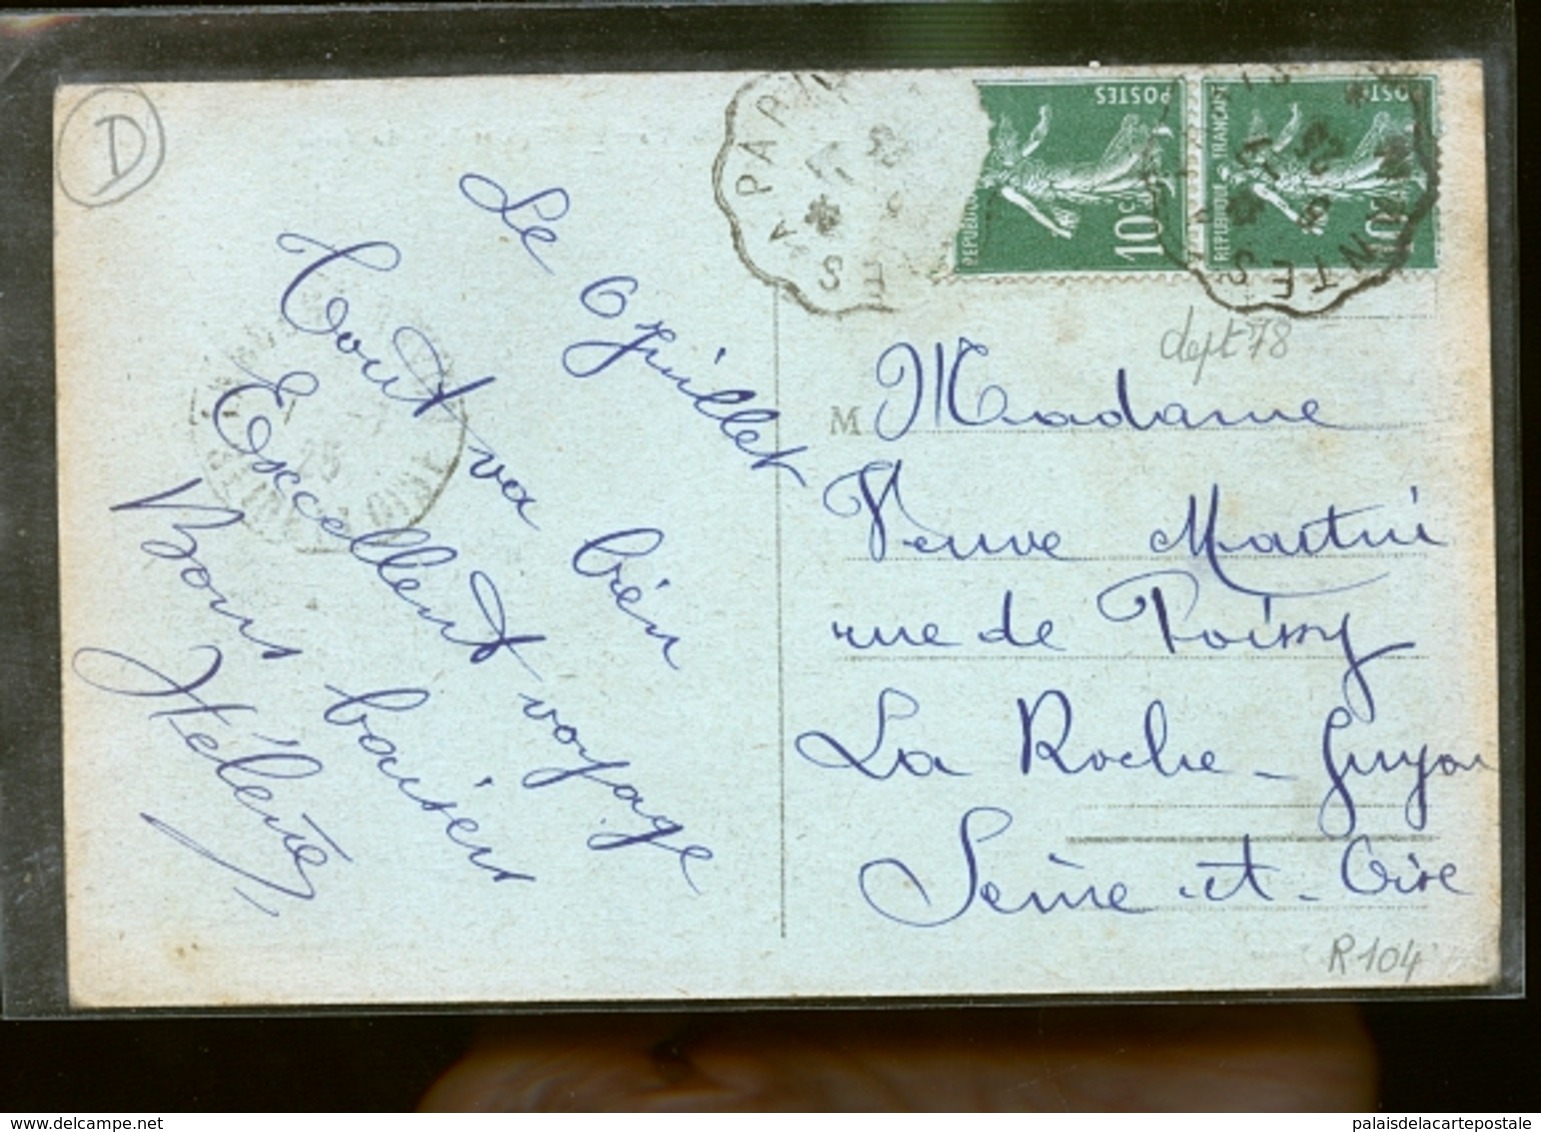 D
Le 6 Juillet
Tout va bien
Excellent voyage
Bons baisers
Hélène
A PARI
ES
POSTES
10c
REPUBLIQUE FRANÇAISE
POSTES
10c
NTES
25
SEINE-ET-OISE
dept 78
M Madame
Veuve Martin
rue de Poissy
La Roche-Guyon
Seine-et-Oise
R104
palaisdelacartepostale